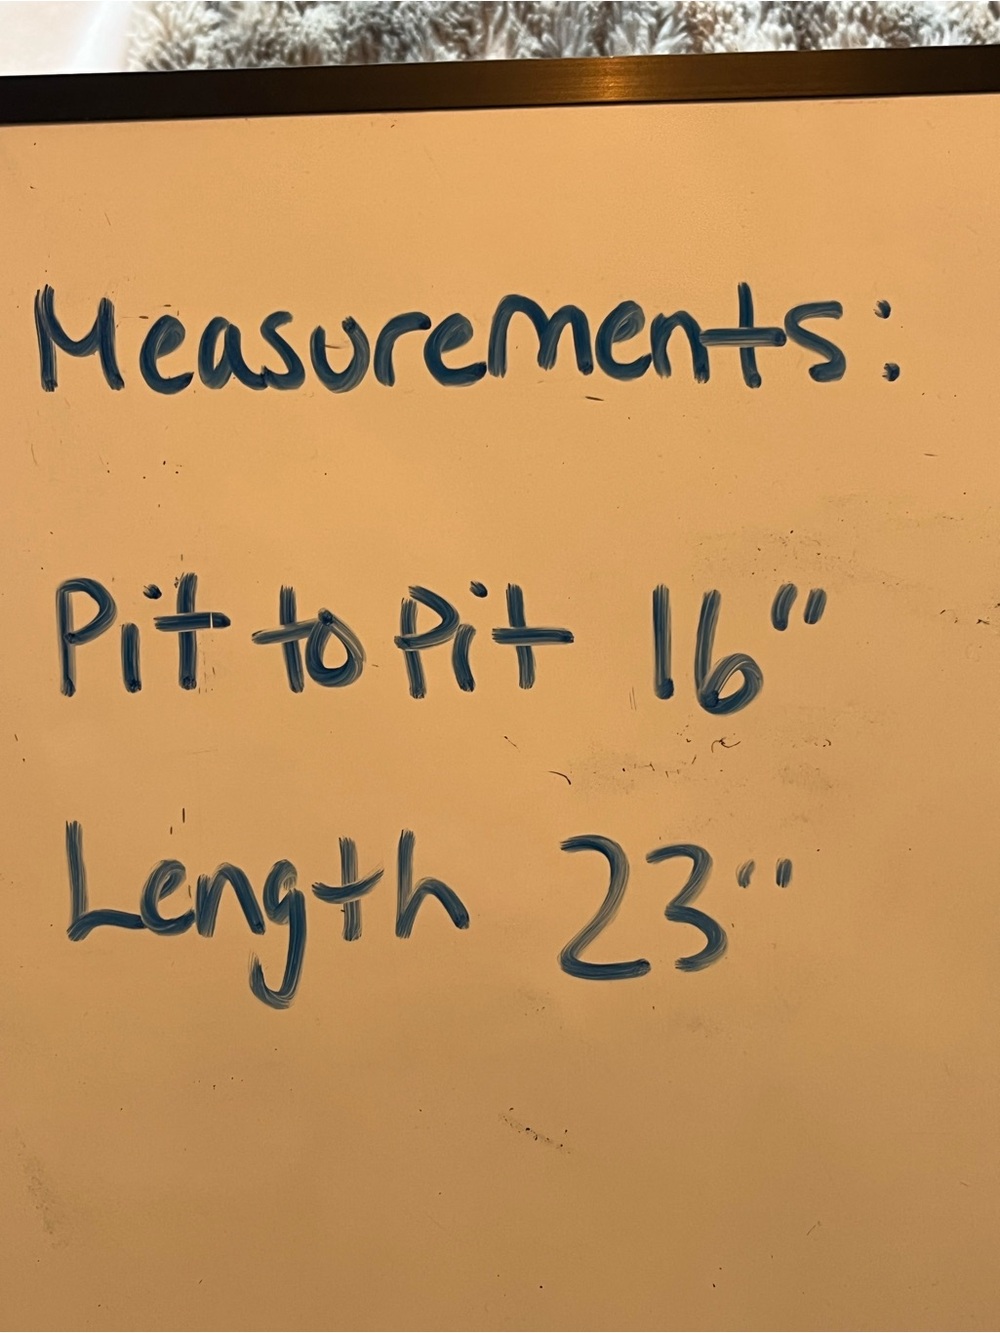 Measurements:
Pit to Pit 16"
Length 23"